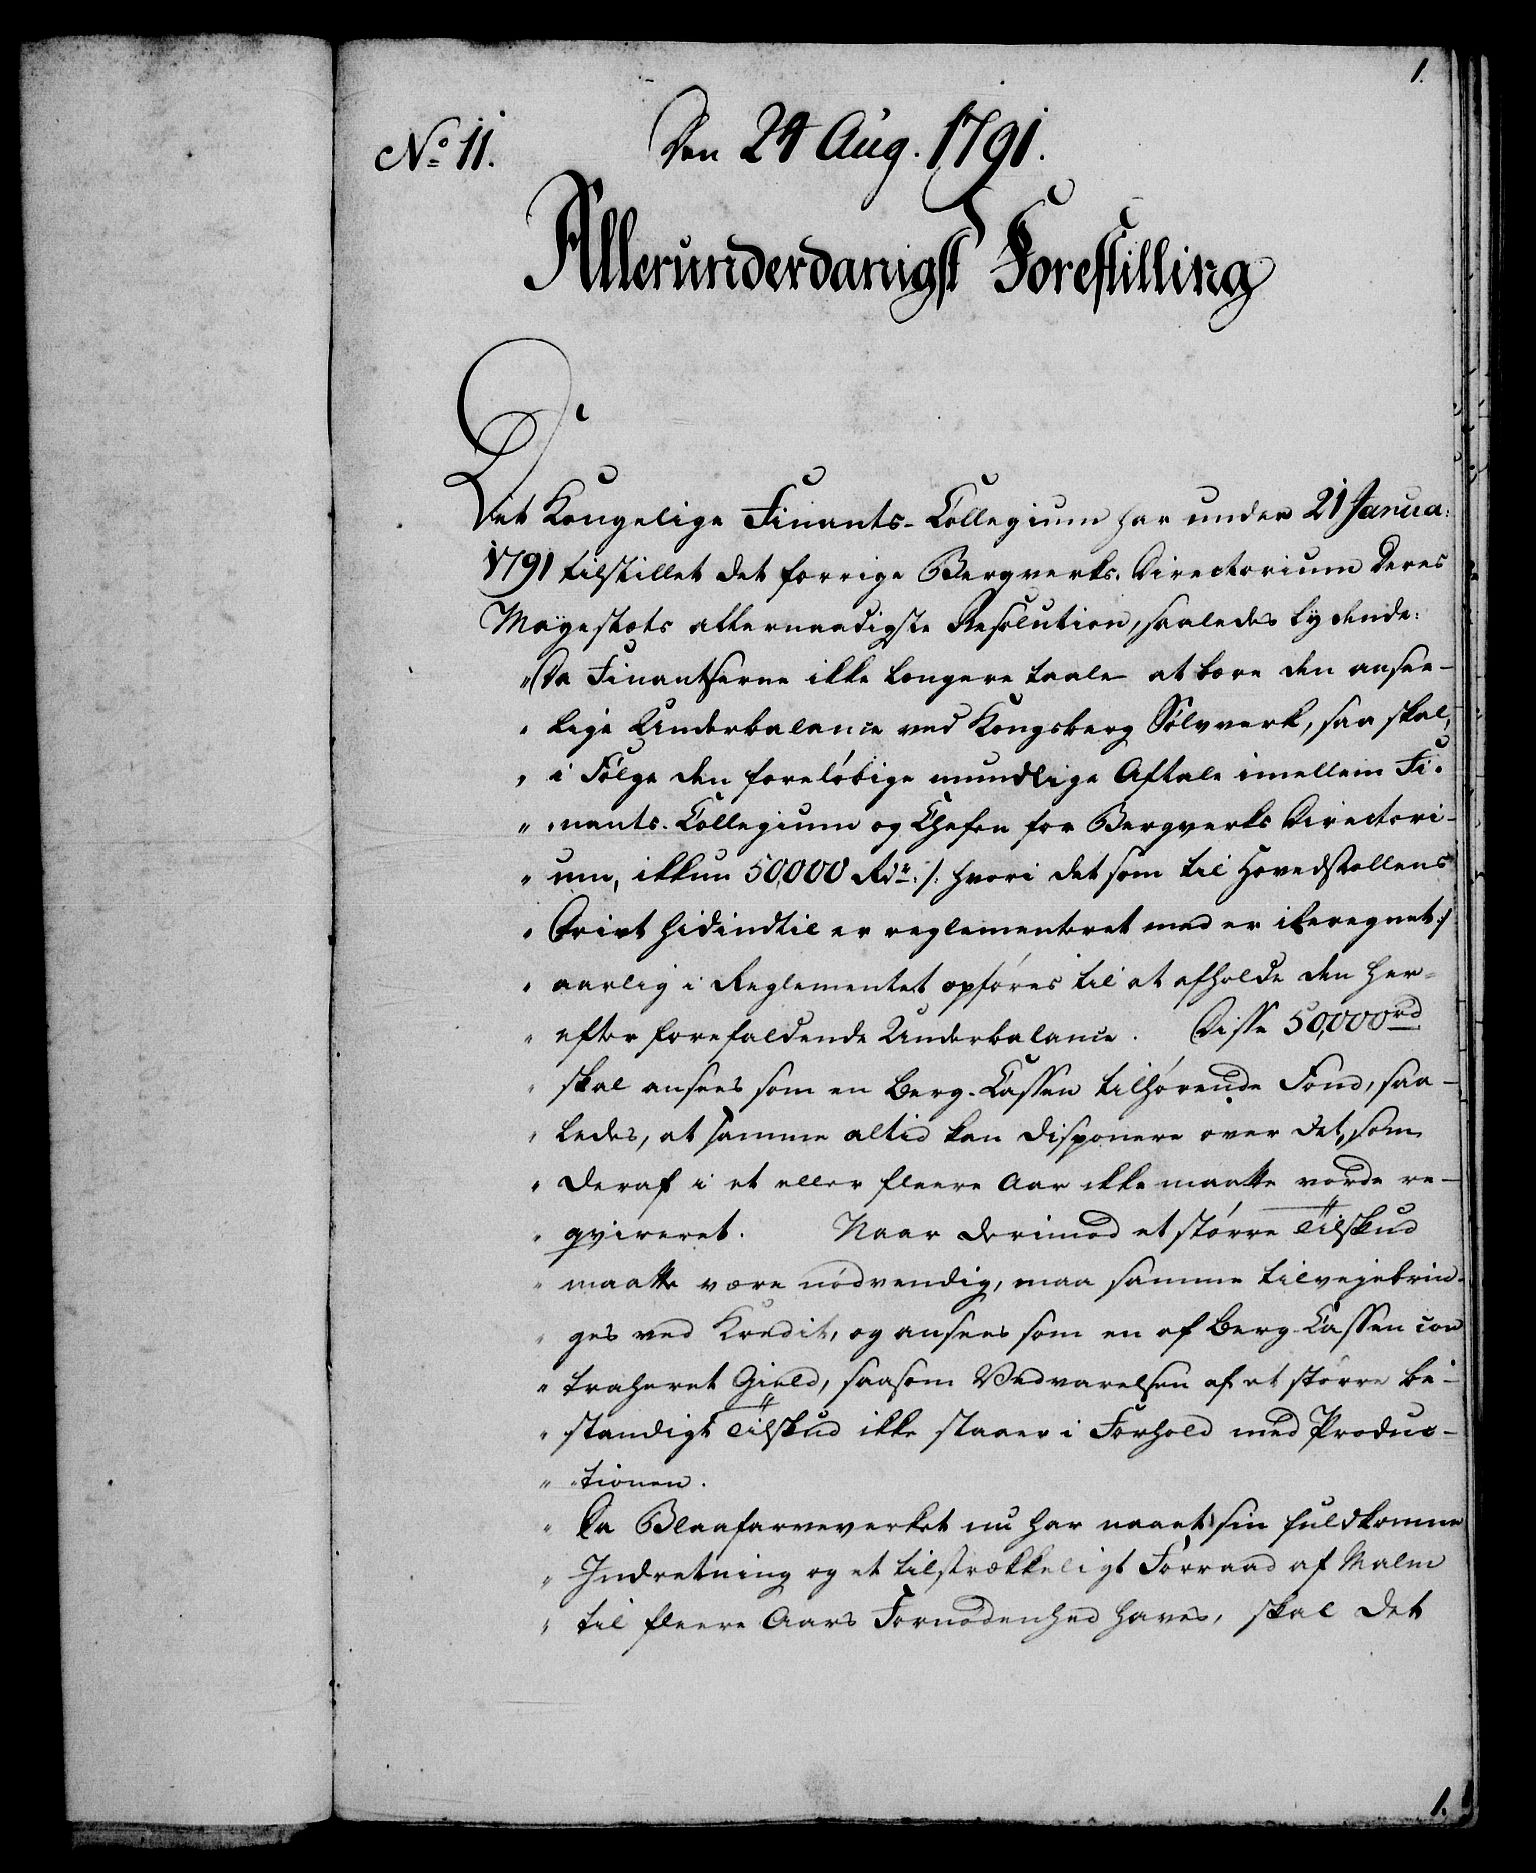 1.
No 11.
Den 24 Aug. 1791.
Allerunderdanigst Forestilling
Det Kongelige Finants-Collegium har under 21 Janua:
1791 tilstillet det forrige Bergverks-Directorium Deres
Mayestæts allernaadigste Resolution, saaledes lydende:
"Da Finantserne ikke længere taale at bære den ansee-
" lige Underbalance ved Kongsberg Sølvverk, saa skal,
" i Følge den foreløbige mundlige Aftale imellem Fi-
" nants-Collegium og Chefen for Bergverks Directori-
" um, ikkun 50,000 Rdr. /: hvori det som til Hovedstollens
" Drivt hidindtil er reglementeret med er iberegnet :/
" aarlig i Reglementet opføres til at afholde den her-
" efter forefaldende Underbalance. Disse 50,000 rd
" skal ansees som en Berg-Cassen tilhørende Fond, saa-
" ledes, at samme altid kan disponere over det, som
" deraf i et eller fleere Aar ikke maatte vorde re-
" qvireret. Naar derimod et større Tilskud
" maatte være nødvendig, maa samme tilvejebrin-
" ges ved Kredit, og ansees som en af Berg-Cassen con
" traheret Gield, saasom Vedvarelsen af et større be-
" standigt Tilskud ikke staaer i Forhold med Produc-
" tionen.
" Da Blaafarveverket nu har naaet sin fuldkomne
" Indretning og et tilstrækkeligt Forraad af Malm
" til fleere Aars Fornødenhed haves, skal det
1.